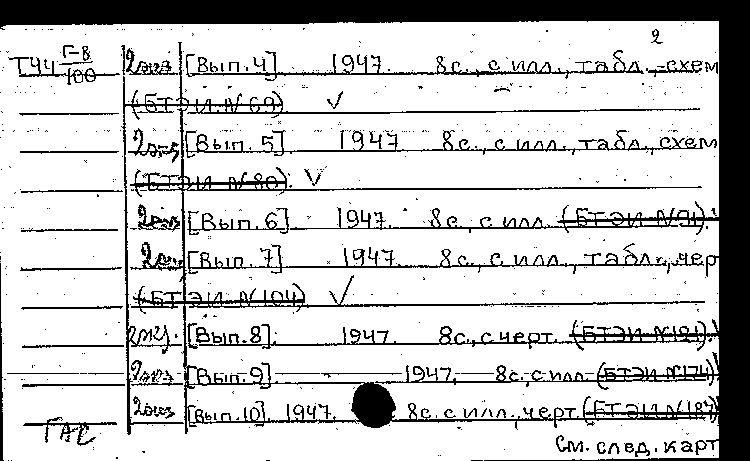 2
Т44 Г-8/100 2экз [Вып. 4] 1947. 8с., с илл., табл., схем
(БТЭИ N 69) ✓
2экз [Вып. 5] 1947 8с., с илл., табл., схем
(БТЭИ N 80). ✓
2экз [Вып. 6] 1947. 8с., с илл. (БТЭИ N 91).
2экз [Вып. 7] 1947. 8с., с илл., табл., черт
(БТЭИ N 104) ✓
2экз. [Вып. 8]. 1947. 8с., с черт. (БТЭИ N 121).
2экз [Вып. 9] 1947. 8с., с илл. (БТЭИ N 174)
2экз [Вып. 10]. 1947. 8с. с илл., черт. (БТЭИ N 187)
ГАС
См. след. карт